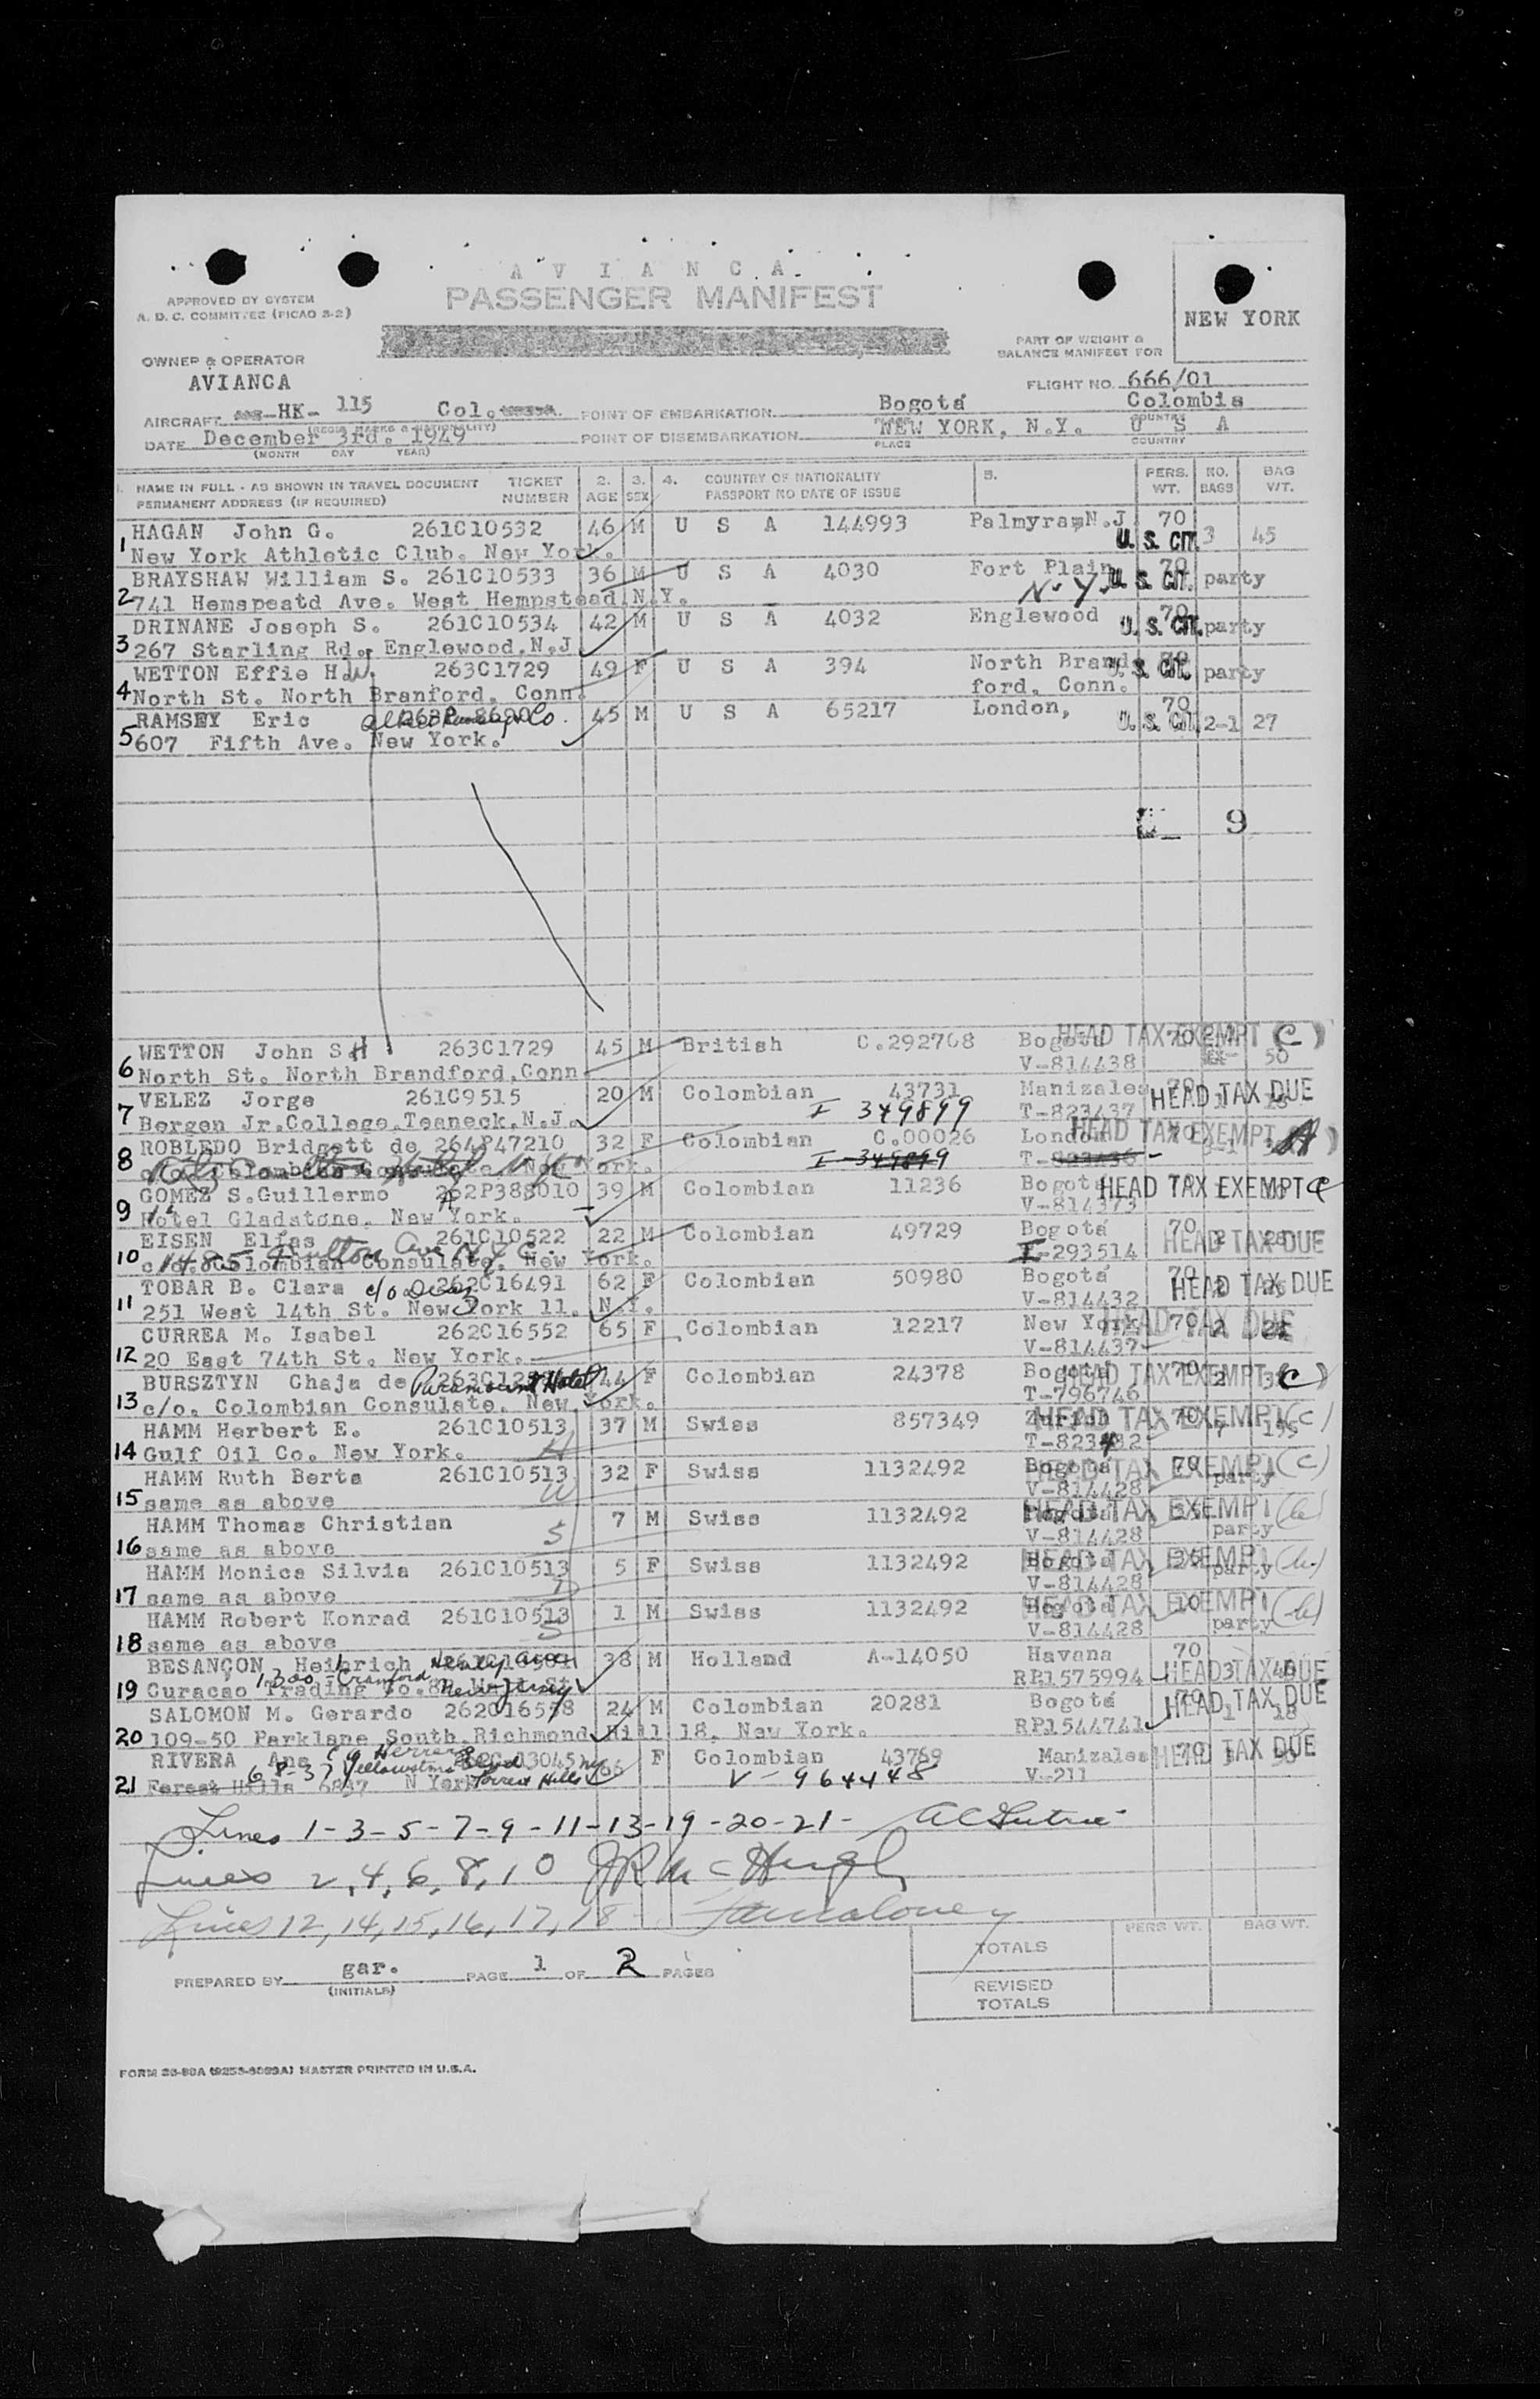 A V I A N C A
PASSENGER MANIFEST
APPROVED BY SYSTEM
A. D. C. COMMITTEE (PICAO 3-2)
NEW YORK
PART OF WEIGHT &
BALANCE MANIFEST FOR
OWNER & OPERATOR
AVIANCA
FLIGHT NO. 666/01
AIRCRAFT HK- 115 Col. POINT OF EMBARKATION Bogotá Colombia
(REGIS MARKS & NATIONALITY) PLACE COUNTRY
DATE December 3rd. 1949 POINT OF DISEMBARKATION NEW YORK, N.Y. U S A
(MONTH DAY YEAR) PLACE COUNTRY
1. NAME IN FULL - AS SHOWN IN TRAVEL DOCUMENT TICKET 2. 3. 4. COUNTRY OF NATIONALITY 5. PERS. NO. BAG
PERMANENT ADDRESS (IF REQUIRED) NUMBER AGE SEX PASSPORT NO DATE OF ISSUE WT. BAGS WT.
HAGAN John G. 261C10532 46 M U S A 144993 Palmyra, N.J. 70
1 New York Athletic Club. New York. U. S. CIT. 3 45
BRAYSHAW William S. 261C10533 36 M U S A 4030 Fort Plain 70
2 741 Hemspeatd Ave. West Hempstead.N.Y. N. Y. U. S. CIT. party
DRINANE Joseph S. 261C10534 42 M U S A 4032 Englewood 70
3 267 Starling Rd. Englewood.N.J. U. S. CIT. party
WETTON Effie H.W. 263C1729 49 F U S A 394 North Brand- 70
4 North St. North Branford. Conn. ford. Conn. U. S. CIT. party
RAMSEY Eric & Co. 45 M U S A 65217 London, 70
5 607 Fifth Ave. New York. U. S. CIT. 2-1 27
9
WETTON John S.H. 263C1729 45 M British C.292768 Bogotá 70 HEAD TAX EXEMPT (C)
6 North St. North Brandford.Conn V-814438 50
VELEZ Jorge 261C9515 20 M Colombian 43731 Manizales 70
7 Bergen Jr.College.Teaneck.N.J. I 349899 T-823437 HEAD TAX DUE
ROBLEDO Bridgett de 264P47210 32 F Colombian C.00026 London 70 HEAD TAX EXEMPT A)
8 c/o. Colombian Consulate. New York. I-349899
GOMEZ S.Guillermo 262P388010 39 M Colombian 11236 Bogotá HEAD TAX EXEMPT C
9 Hotel Gladstone. New York. V-814373
EISEN Elías 261C10522 22 M Colombian 49729 Bogotá 70
10 c/o. Colombian Consulate. New York. 1485 Fulton Ave N.Y.C. I-293514 HEAD TAX DUE
TOBAR B. Clara c/o Diaz 262C16491 62 F Colombian 50980 Bogotá 70
11 251 West 14th St. New York 11. N.Y. V-814432 HEAD TAX DUE
CURREA M. Isabel 262C16552 65 F Colombian 12217 New York 70 2 HEAD TAX DUE
12 20 East 74th St. New York. V-814437
BURSZTYN Chaja de Paramount Hotel 44 F Colombian 24378 Bogotá 70 2 HEAD TAX EXEMPT (C)
13 c/o. Colombian Consulate. New York. T-796746
HAMM Herbert E. 261C10513 37 M Swiss 857349 Zurich 70 HEAD TAX EXEMPT (C)
14 Gulf Oil Co. New York. H T-823432
HAMM Ruth Berta 261C10513 32 F Swiss 1132492 Bogotá 70 HEAD TAX EXEMPT (C)
15 same as above W V-814428 party
HAMM Thomas Christian 7 M Swiss 1132492 Bogotá HEAD TAX EXEMPT
16 same as above S V-814428 party
HAMM Monica Silvia 261C10513 5 F Swiss 1132492 Bogotá HEAD TAX EXEMPT
17 same as above D V-814428 party
HAMM Robert Konrad 261C10513 1 M Swiss 1132492 Bogotá 10 HEAD TAX EXEMPT
18 same as above S V-814428 party
BESANÇON Heinrich 38 M Holland A-14050 Havana 70
19 Curacao Trading Co. Cranford New Jersey RP1575994 HEAD TAX DUE
SALOMON M. Gerardo 262C16558 24 M Colombian 20281 Bogotá 70 1 18 HEAD TAX DUE
20 109-50 Parklane South.Richmond Hill 18. New York. RP1544741
RIVERA Ana 66 F Colombian 43769 Manizales 70 HEAD TAX DUE
21 Forest Hills 6837 N York Forrest Hills V-964448 V-211
Lines 1-3-5-7-9-11-13-19-20-21-
Lines 2,4,6,8,10 JR McHugh
Lines 12,14,15,16,17,18
PERS WT. BAG WT.
TOTALS
REVISED
TOTALS
PREPARED BY gar. PAGE 1 OF 2 PAGES
(INITIALS)
MASTER PRINTED IN U.S.A.